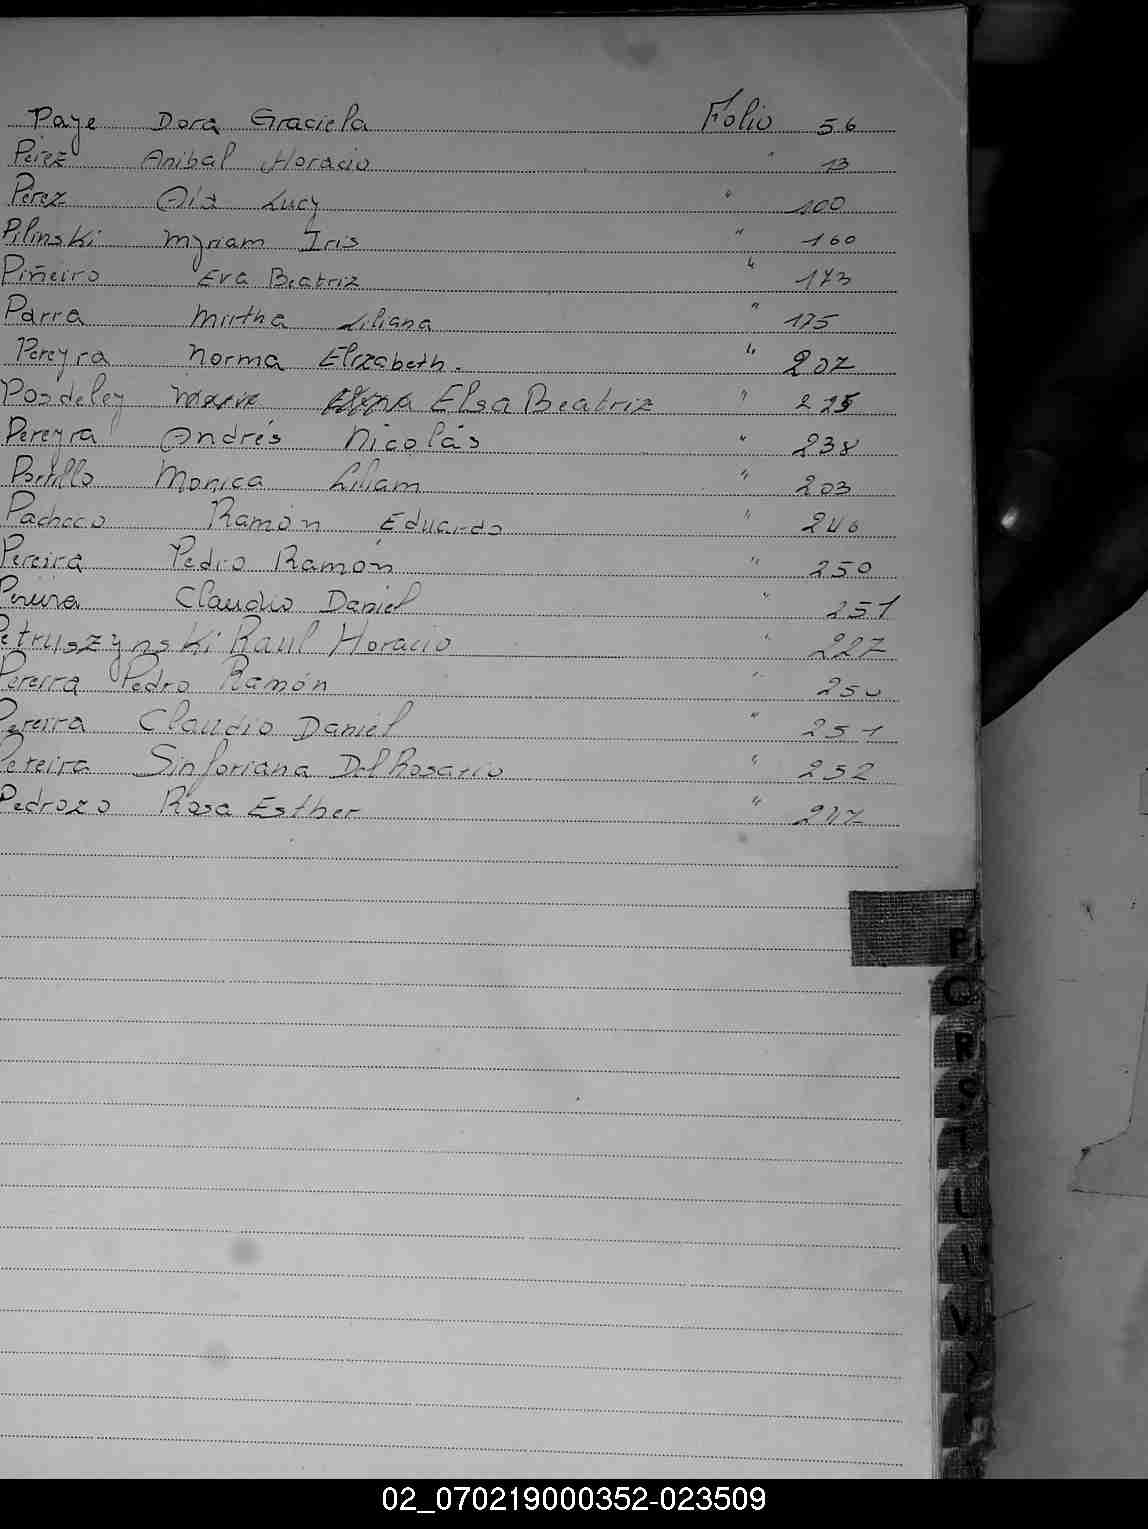 Paye Dora Graciela Folio 56
Pérez Anibal Horacio " 13
Perez Lucy " 100
Pilinski Myriam Iris " 160
Piñeiro Eva Beatriz " 173
Parra Mirtha Liliana " 175
Pereyra Norma Elizabeth. " 207
Posdeley Elsa Beatriz " 225
Pereyra Andrés Nicolás " 238
Portillo Monica Liliam " 203
Pacheco Ramón Eduardo " 240
Pereira Pedro Ramón " 250
Pereira Claudio Daniel " 251
Petruszynski Raul Horacio " 227
Pereira Pedro Ramón " 250
Pereira Claudio Daniel " 251
Pereira Sinforiana Del Rosario " 252
Pedrozo Rosa Esther " 217
P
Q
R
S
T
U
V
02_070219000352-023509